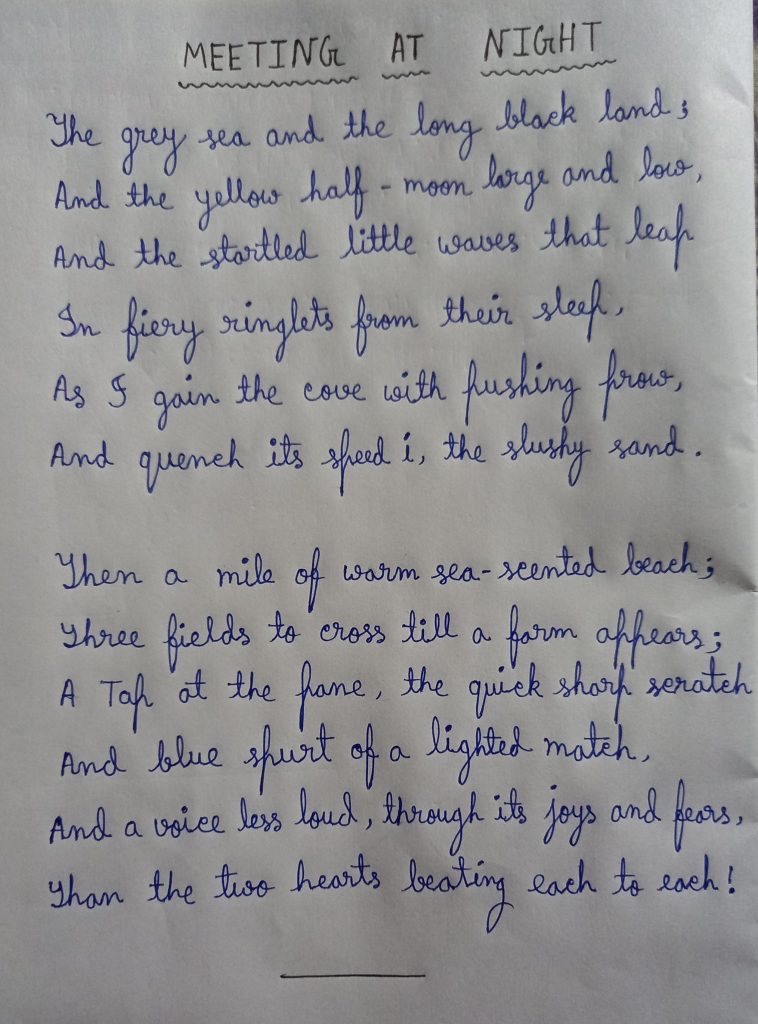 MEETING AT NIGHT
The grey sea and the long black land;
And the yellow half-moon large and low,
And the startled little waves that leap
In fiery ringlets from their sleep,
As I gain the cove with pushing prow,
And quench its speed i, the slushy sand.
Then a mile of warm sea-scented beach;
Three fields to cross till a farm appears;
A Tap at the pane, the quick sharp scratch
And blue spurt of a lighted match,
And a voice less loud, through its joys and fears,
Than the two hearts beating each to each!